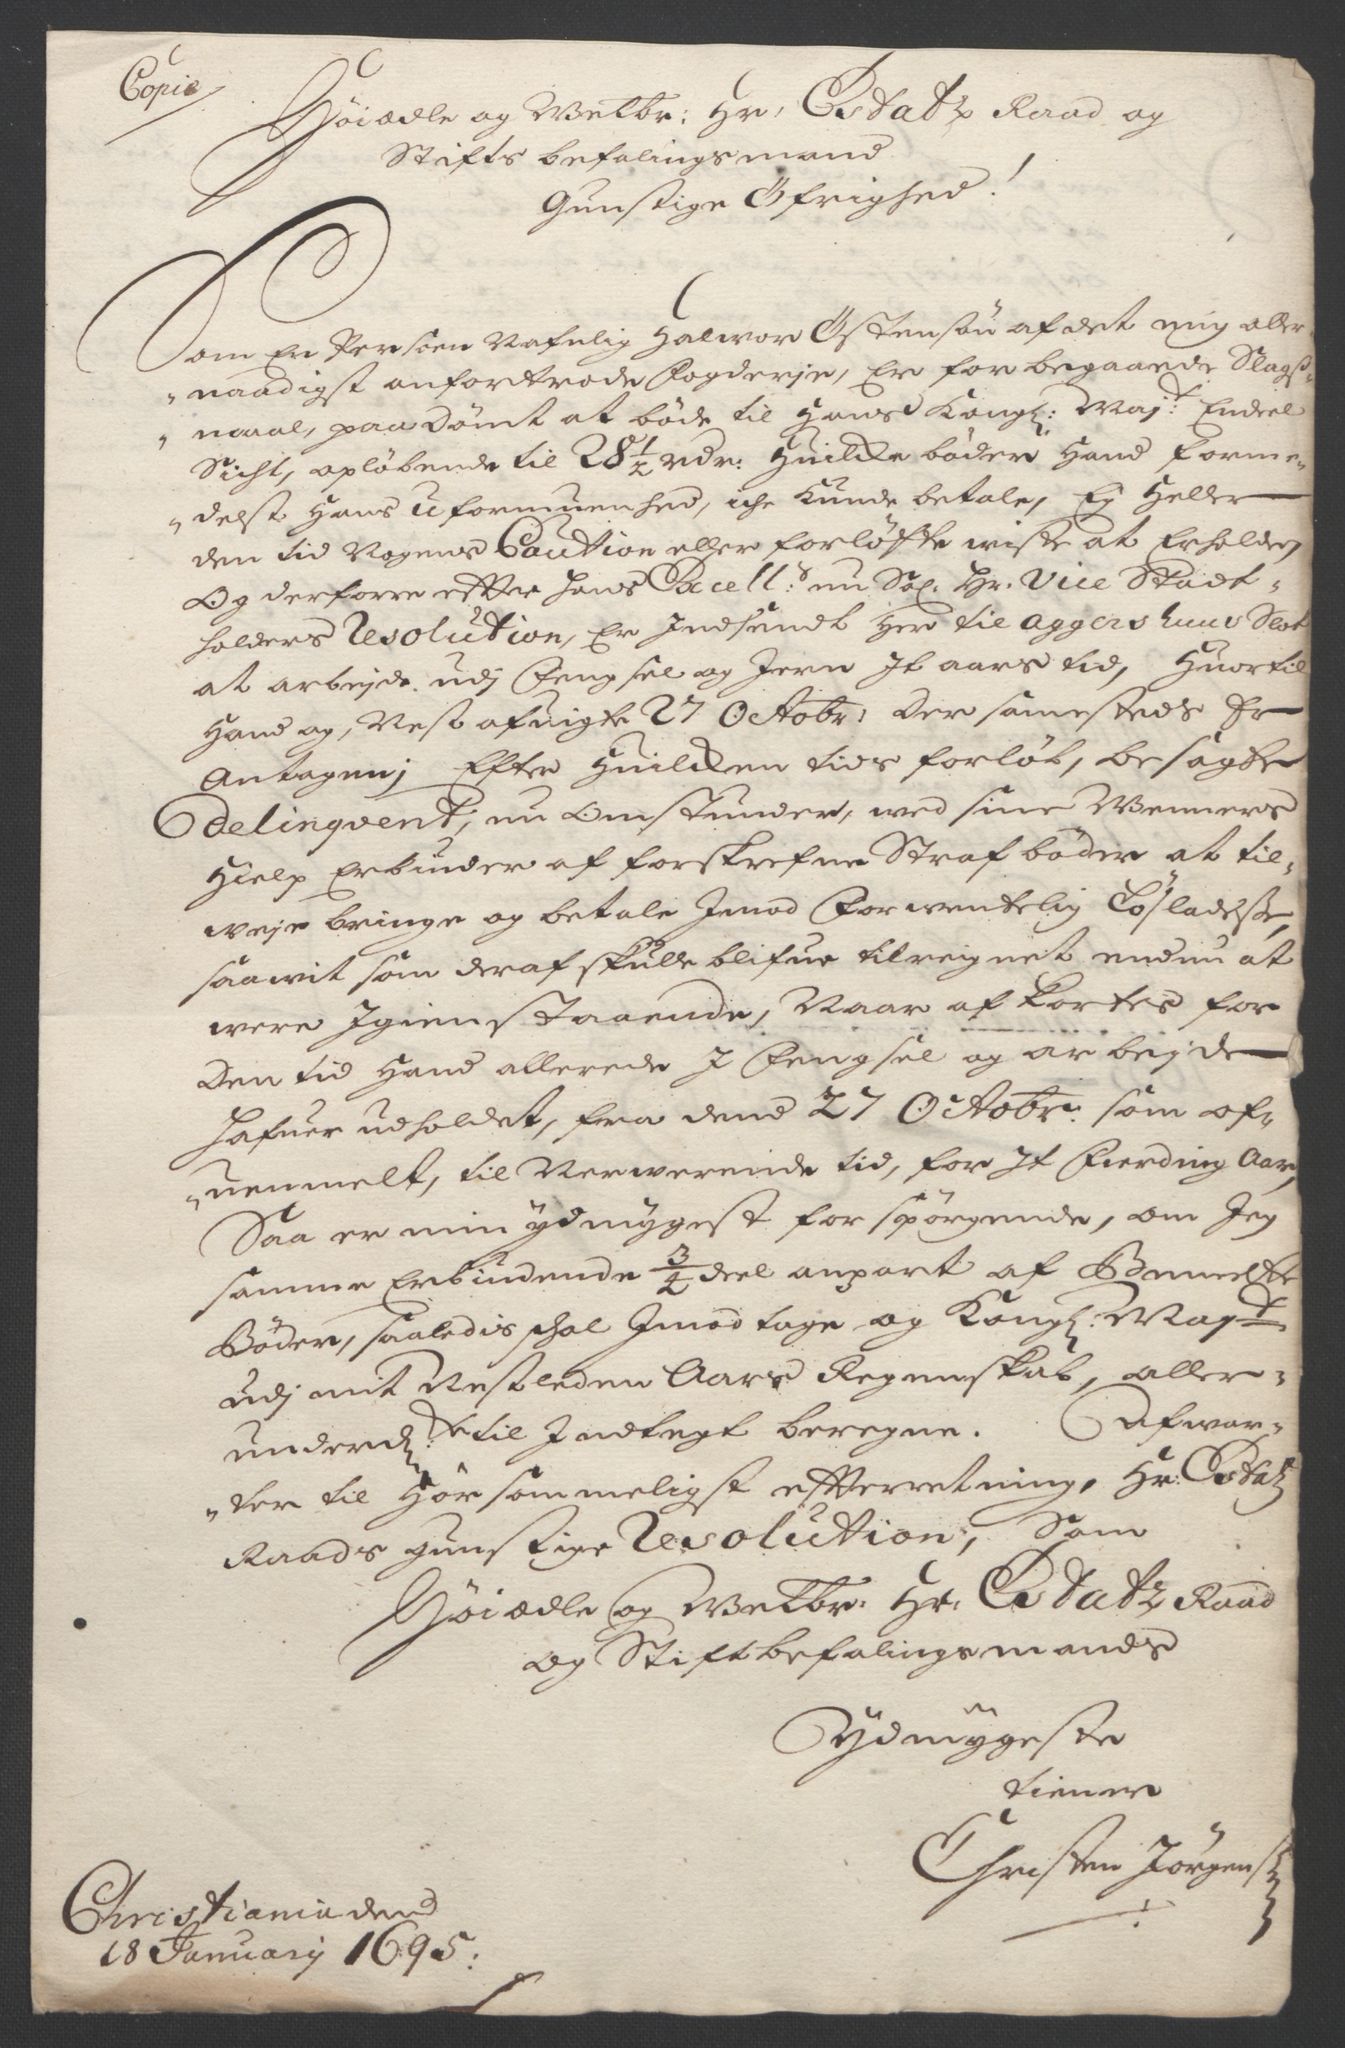 Copie
Høiædle og Welbr: Hr: Etatz Raad og
Stifts befalingsmand
Gunstige Öfrighed!
Som En Persoen Nafnlig Halvor Östensön af det mig aller
naadigst anfortrode Fogderje, Er for begaaende Slags-
maal, paa Dömt at böde til Hans Kongl: Maj:t Endeel
Sicht, opløbende til 28½ rdr: Huilcke böder Hand forme-
delst Hans Uformuenhed, iche Kunde betale, Ej Heller
den tid Nogens Caution eller forløfte wiste at Erholde,
Og derforre effter hans Excell:s nu Sal. Hr. Vice Stadt-
holders Resolution, Er Indsendt Her til Aggershuus Slot
at arbejde udj Fengsel og Jern It aars tid, Huortil
Hand og, Nest afuigte 27 Octobr: Der sammesteds Er
Antagen; Efter Huilcken tids forløb, besagte
Delinqvent, nu Omstunder, wed sine Wenners
Hielp Erbinder af forskrefne Straf böder at til-
weje bringe og betale Imod Forwentelig Løsladelse,
saawit som deraf skulle blifue tilreignet endnu at
were Igienstaaende, Naar af kortes for
Den tid Hand allerede I Fengsel og arbejde
hafuer udholdet, fra dend 27 Octobr: som of-
uenmelt, til Nerwerende tid, for It Fierding Aar,
Saa er min ydmygest forspörgende, om Jeg
samme Erbiudende ¾ deel anpart af Bemeelte
Böder, saaledis skal Imodtage og Kongl: Maj:t
udj mit Nestleden Aars Regenskab, aller-
underd:te til Indtegt beregne. Afwar-
ter til Hörsommeligst effterretning, Hr: Etatz
Raads gunstige Resolution, Som
Høiædle og Welbr: Hr: Etatz Raad
og Stiftbefalingsmands
Ydmygeste
tiener
Christen Jörgens
Christiania dend
18 Januarij 1695: